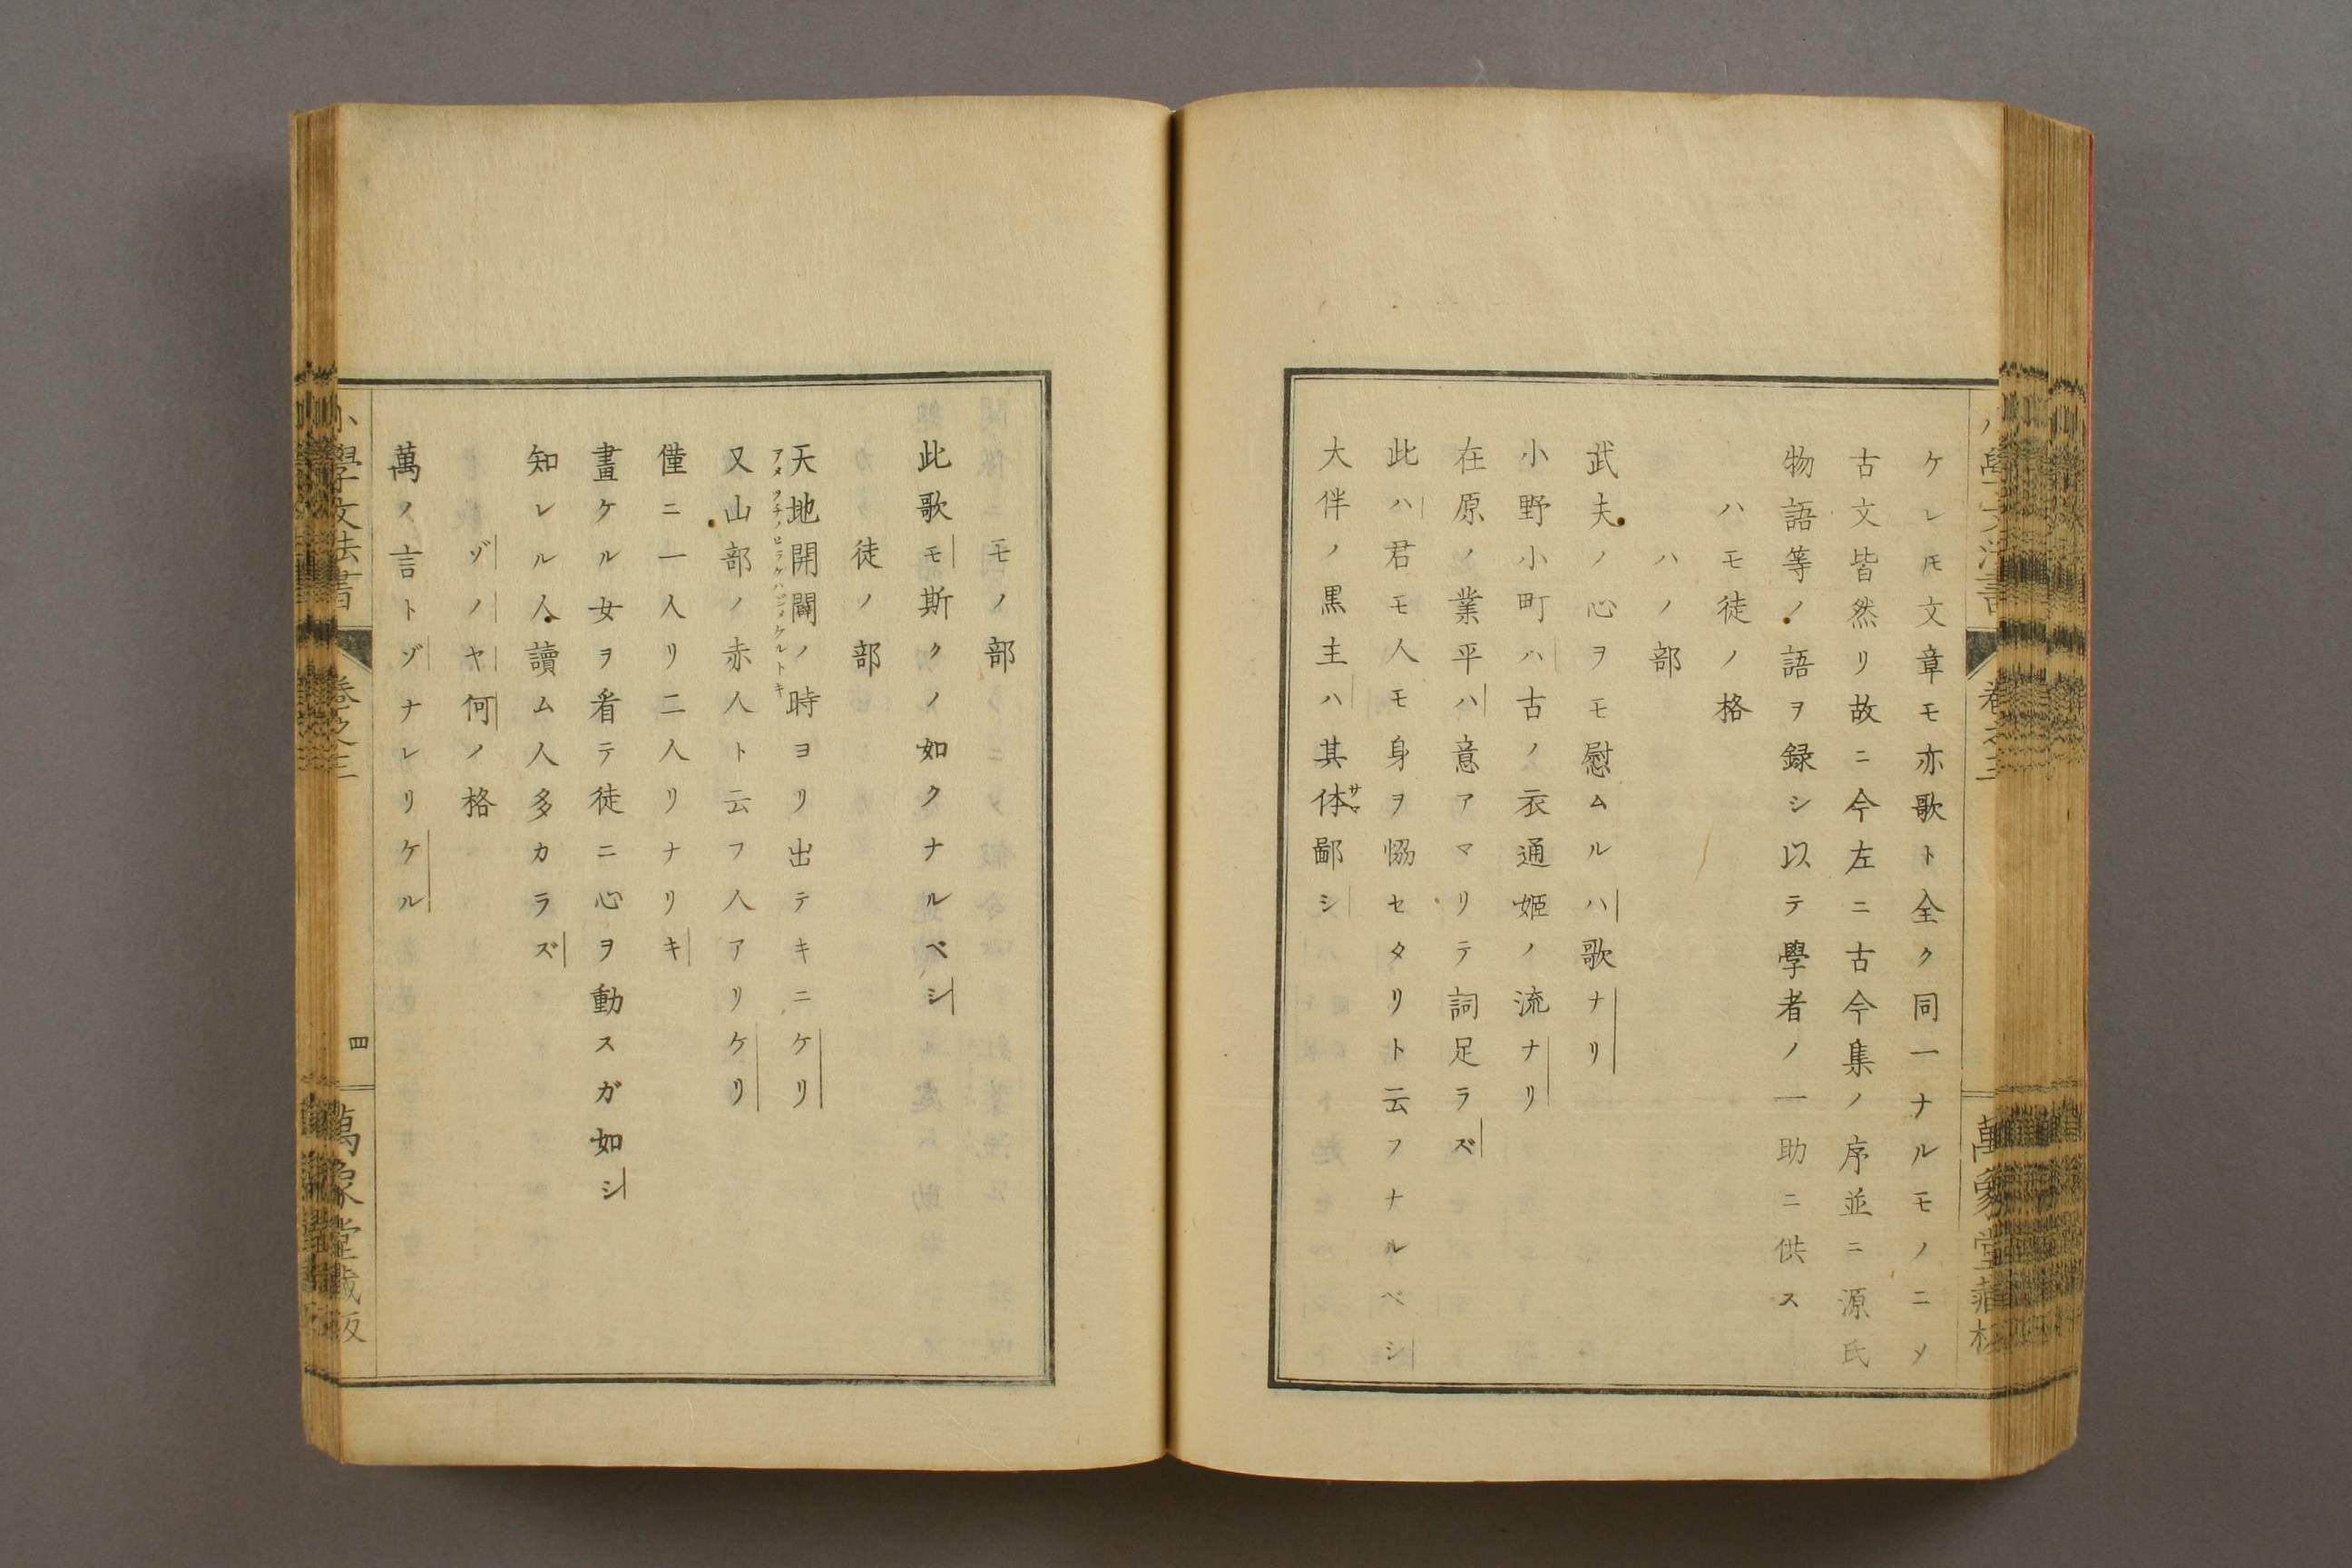 ケレ𪜈文章モ亦歌ト全ク同一ナルモノニメ
古文皆然リ故ニ今左ニ古今集ノ序並ニ源氏
物語等ノ語ヲ録シ以テ學者ノ一助ニ供ス
ハモ徒ノ格
ハノ部
武夫ノ心ヲモ慰ムルハ歌ナリ
小野小町ハ古ノ衣通姫ノ流ナリ
在原ノ業平ハ意アマリテ詞足ラズ
此ハ君モ人モ身ヲ恊セタリト云フナルベシ
大伴ノ黒主ハ其体サマ鄙シ
モノ部
此歌モ斯クノ如クナルベシ
徒ノ部
天地開闢ノ時ヨリ出テキニケリ
アメツチノヒラケハジメケルトキ
又山部ノ赤人ト云フ人アリケリ
僅ニ一人リ二人リナリキ
畫ケル女ヲ看テ徒ニ心ヲ動スガ如シ
知レル人讀ム人多カラズ
ゾノヤ何ノ格
萬ノ言トゾナレリケル
小學文法書 巻之三 四 萬象堂藏版